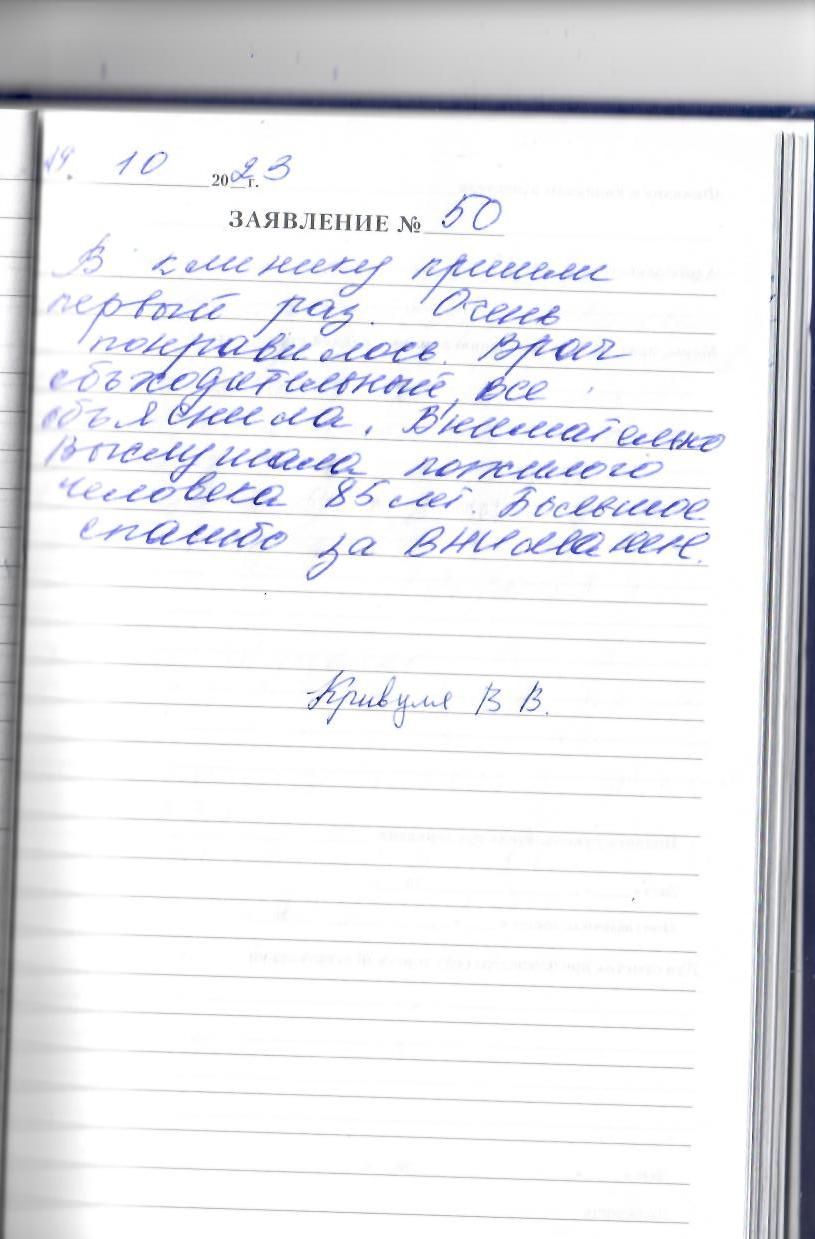 10 2023 г.
ЗАЯВЛЕНИЕ № 50
В клинику пришли
первый раз. Очень
понравилось. Врач
объходительный, все
объяснила. Внимательно
выслушала пожилого
человека 85 лет. Большое
спасибо за внимание.
Кривуля В В.